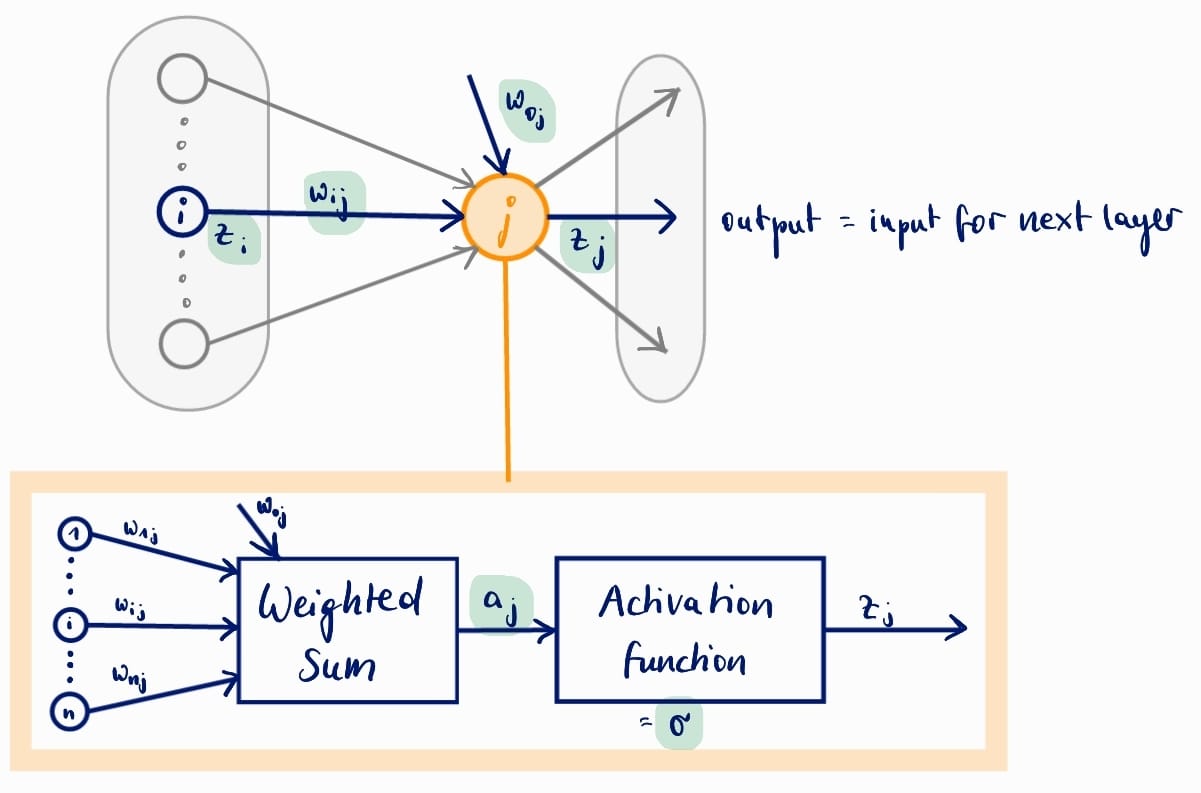 w₀ⱼ
wᵢⱼ
i
zᵢ
j
zⱼ
output = input for next layer
1
w₁ⱼ
w₀ⱼ
i
wᵢⱼ
n
wₙⱼ
Weighted
Sum
aⱼ
Activation
function
= σ
zⱼ